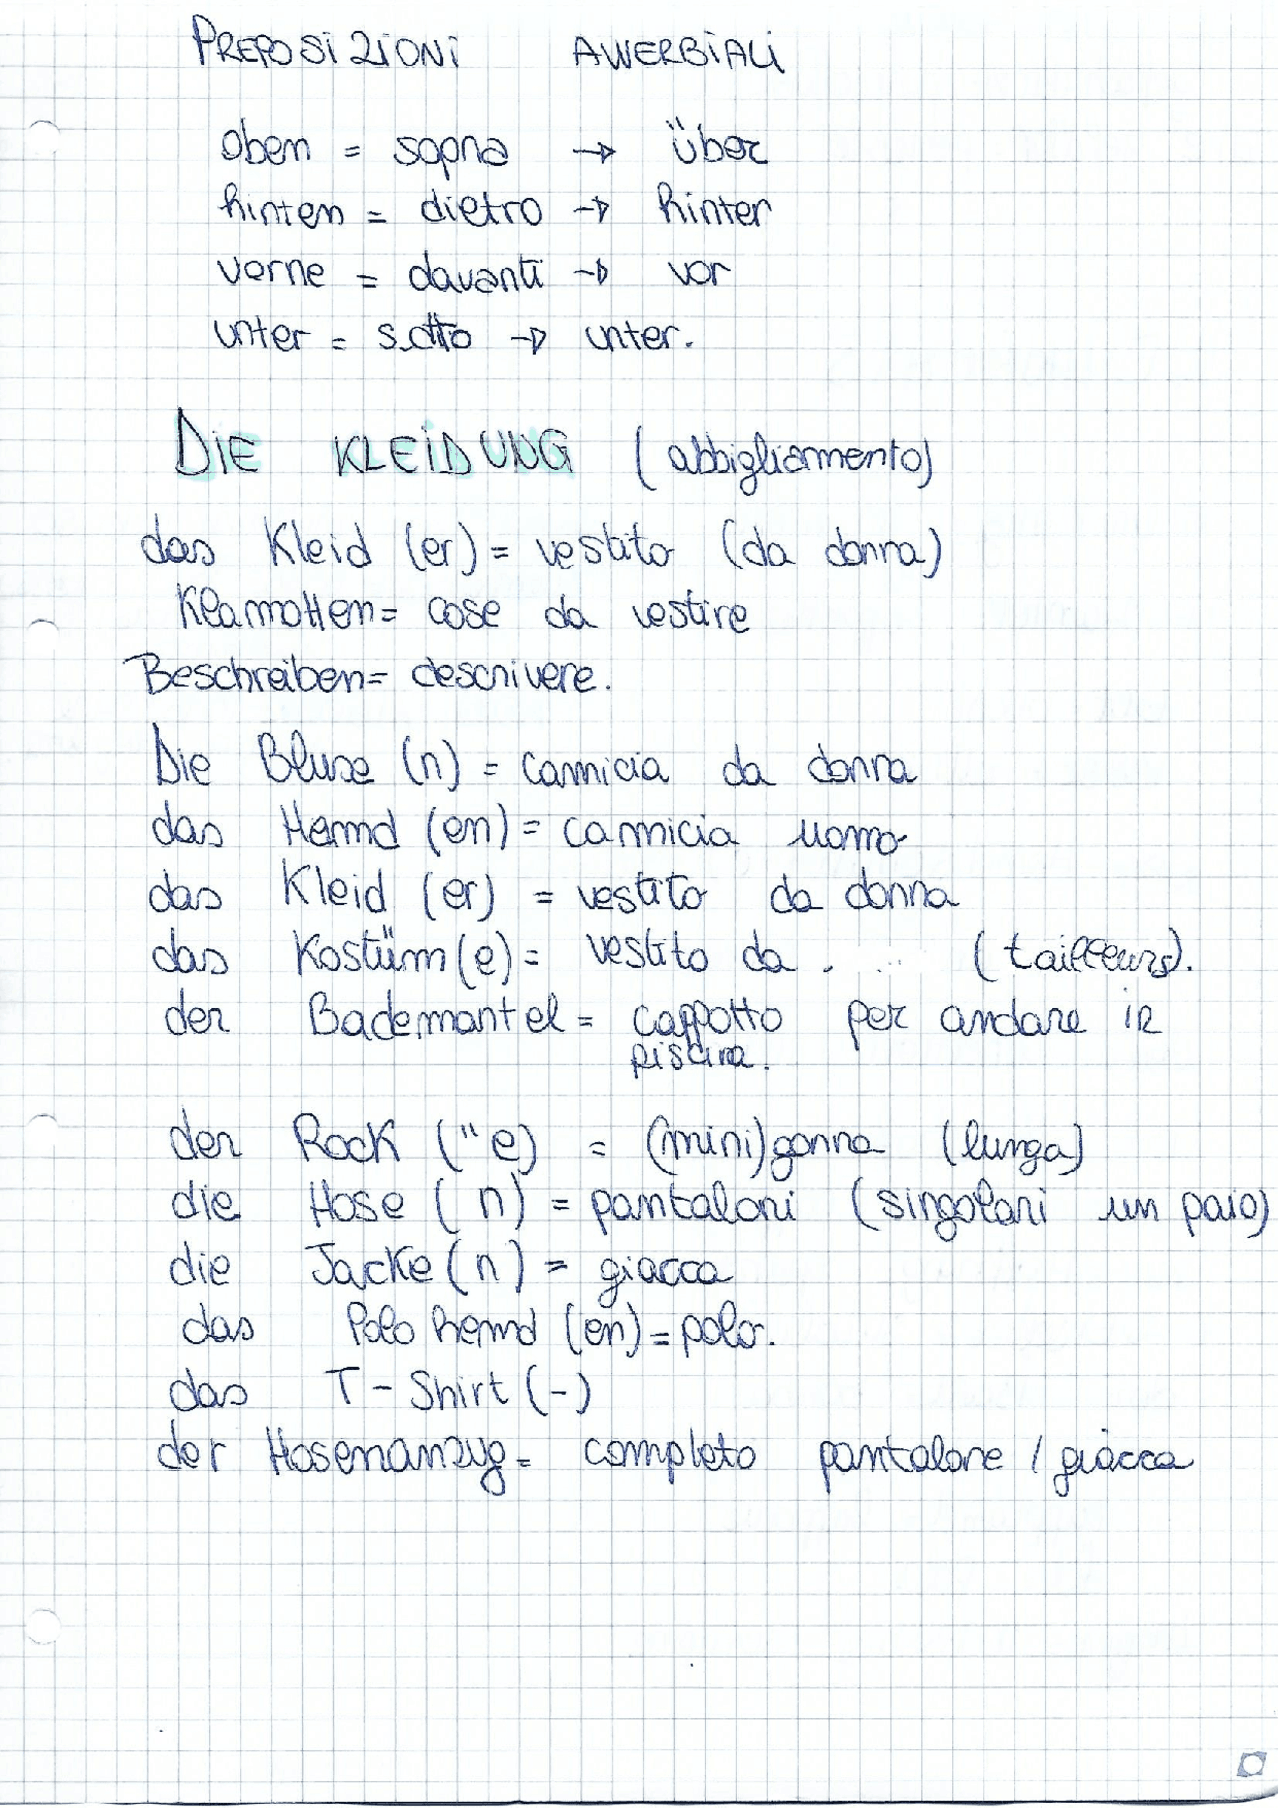 PREPOSIZIONI AVVERBIALI
oben = sopra → über
hinten = dietro → hinter
vorne = davanti → vor
unter = sotto → unter.
DIE KLEIDUNG (abbigliamento)
das Kleid (er) = vestito (da donna)
Klamotten = cose da vestire
Beschreiben = descrivere.
Die Bluse (n) = camicia da donna
das Hemd (en) = camicia uomo
das Kleid (er) = vestito da donna
das Kostüm (e) = vestito da . ... (tailleurs).
der Bademantel = cappotto per andare in
piscina.
der Rock (" e) = (mini)gonna (lunga)
die Hose (n) = pantaloni (singolari un paio)
die Jacke (n) = giacca
das Polo hemd (en) = polo.
das T-Shirt (-)
der Hosenanzug = completo pantalone / giacca